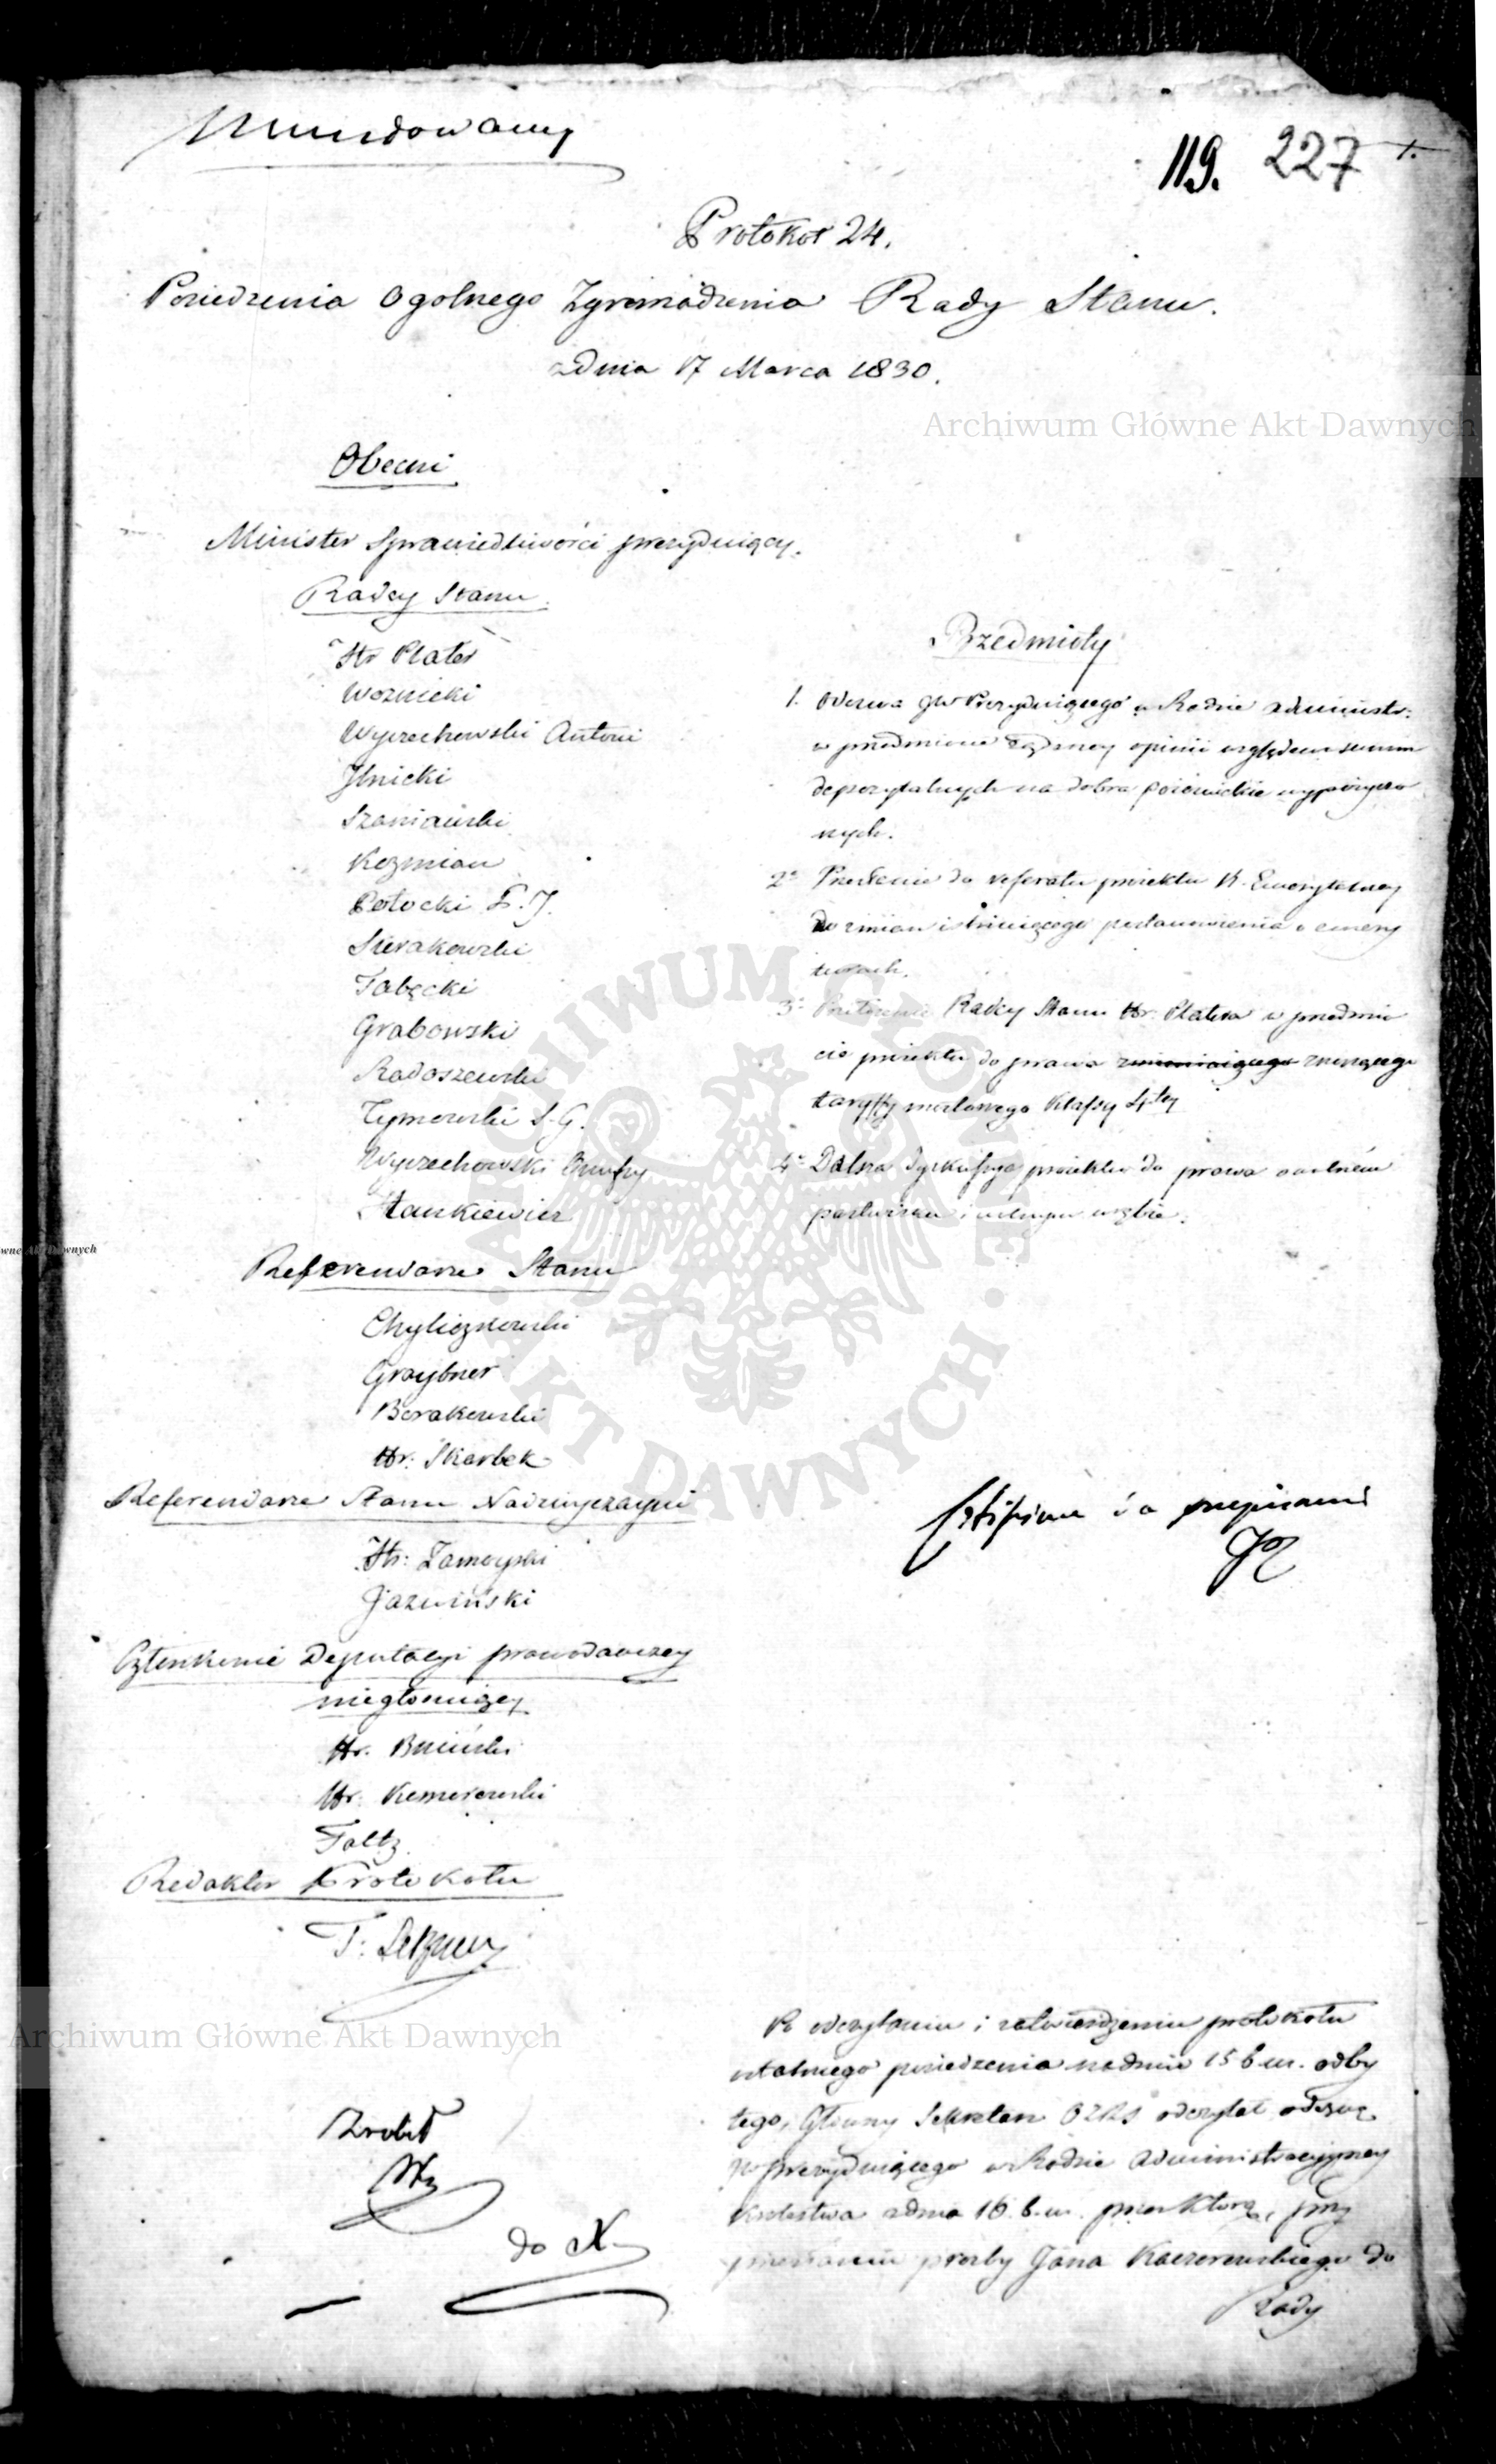 Mundowany
119. 227
Protokoł 24.
Posiedzenia Ogolnego Zgromadzenia Rady Stanu.
z Dnia 17 Marca 1830.
Archiwum Główne Akt Dawnych
Obecni
Minister Sprawiedliwości prezyduiący.
Radcy Stanu.
Hr Plater
Woznicki
Wyczechowski Antoni
Jłnicki
Szaniawski
Kozmian
Potocki
Sierakowski
Tabęcki
Grabowski
Radoszewski
Tymowski
Wyczechowski Onufry
Stankiewicz
Referendarze Stanu
Chyliczkowski
Graybner
Borakowski
Hr: Skarbek
Referendarze Stanu Nadzwyczayni
Hr: Zamoyski
Jazwiński
Członkowie Deputacyi prawodawczey
niegłosuiący
Hr. Bniński
Hr. Komorowski
Faltz
Redaktor Protokołu
Przedmioty
1. Odezwa JW Prezyduiącego w Radzie administr:
w przedmiocie żądaney opinii względem summ
depozytalnych na dobra wypożyczo
nych.
2. Przesłanie do referatu proiektu K. Emerytalney
do zmian istnieiącego postanowienia o emery
turach.
3. Radcy Stanu Hr. Platera w przedmio
cie proiektu do prawa zmieniaiącego znoszącego
taryffy mostowego Klassy 4tey
4. Dalsza dyskussya proiektu do prawa o wolném
pastwisku i wolnym wrębie.
do przepisania
Po odczytaniu i zatwierdzeniu protokołu
ostatniego posiedzenia na dniu 15 b.m. odby
tego, Główny Sekretarz OZRS odczytał odezwę
JW prezyduiącego w Radzie Administracyyney
Królestwa z dnia 16. b.m. przez którą, przy
przesłaniu prozby Jana Kaczorowskiego do
Rady
Zrobił
do
Archiwum Główne Akt Dawnych
ARCHIWUM GŁÓWNE AKT DAWNYCH